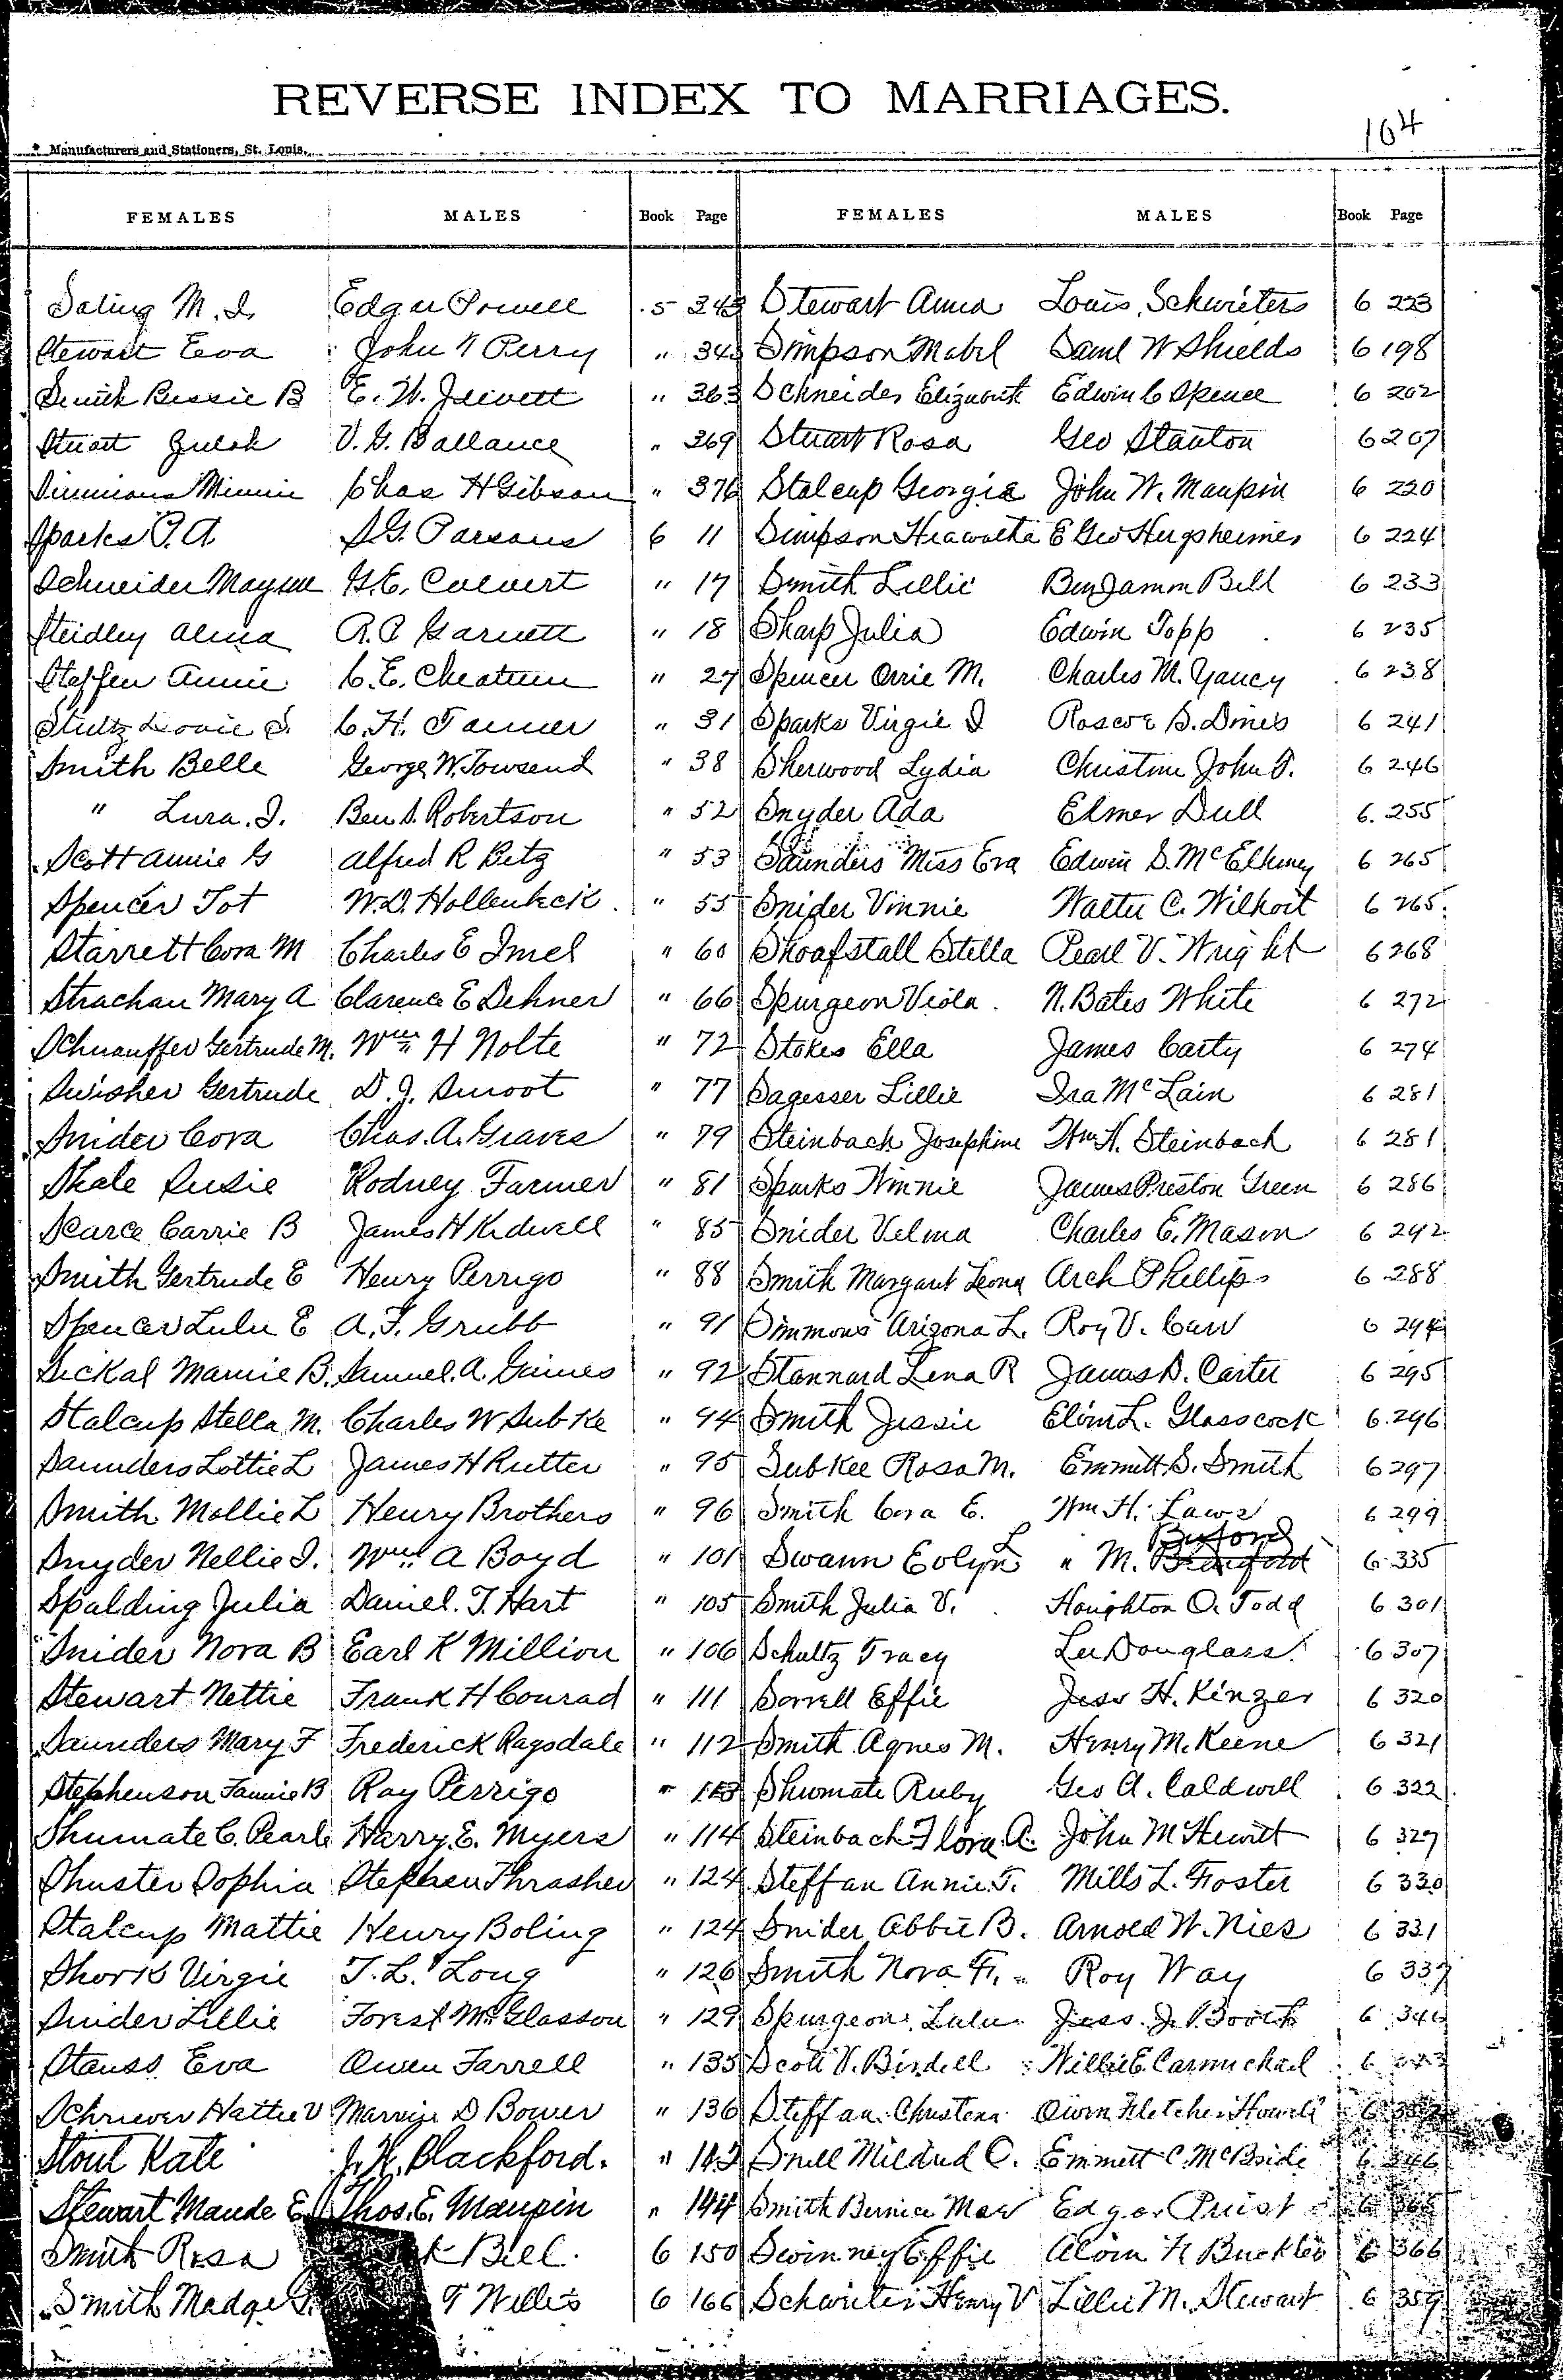 REVERSE INDEX TO MARRIAGES.
164
Manufacturers and Stationers, St. Louis.
FEMALES MALES Book Page FEMALES MALES Book Page
Saling M. I. Edgar Powell 5 343 Stewart Anna Louis Schwieters 6 223
Stewart Eva John Perry " 343 Simpson Mabel Saml W Shields 6 198
Smith Bessie B E. W. Jewett " 363 Schneider Elizabeth Edwin C Spence 6 202
Stuart Zulah V. G. Ballance " 369 Stuart Rosa Geo Stanton 6 207
Simmons Minnie Chas H Gibson " 376 Stalcup Georgia John W. Maupin 6 220
Sparks P. A. S G. Parsons 6 11 Simpson Hiawatha E Geo Hergsheimer 6 224
Schneider Mayme G. E. Calvert " 17 Smith Lillie Benjamin Bell 6 233
Steidley Alma R. P. Garnett " 18 Sharp Julia Edwin Topp 6 235
Steffen Annie C. E. Cheatum " 27 Spencer Orrie M. Charles M. Yancy 6 238
Stultz Dovie S. C. H. Tanner " 31 Sparks Virgie I Roscoe S. Dines 6 241
Smith Belle George W. Towsend " 38 Sherwood Lydia Christine John T. 6 246
" Lura. I. Ben S. Robertson " 52 Snyder Ada Elmer Dull 6. 255
Scott Annie G Alfred R Betz " 53 Saunders Miss Eva Edwin S. McElhiney 6 265
Spencer Tot W. D. Hollenbeck " 55 Snider Vinnie Walter C. Wilhoit 6 265
Starrett Cora M Charles E Imel " 60 Shoafstall Stella Pearl V. Wright 6 268
Strachan Mary A Clarence E Dehner " 66 Spurgeon Viola N. Bates White 6 272
Schnauffer Gertrude M. Wm H Nolte " 72 Stokes Ella James Carty 6 274
Swisher Gertrude D. J. Smoot " 77 Sagesser Lillie Ira McLain 6 281
Snider Cora Chas. A. Graves " 79 Steinbach Josephine Wm H. Steinbach 6 281
Skale Susie Rodney Farmer " 81 Sparks Winnie James Preston Green 6 286
Searce Carrie B James H Kidwell " 85 Snider Velma Charles E. Mason 6 292
Smith Gertrude E Henry Perrigo " 88 Smith Margaret Leona Arch Phillips 6 288
Spencer Lulu E A. F. Grubb " 91 Simmons Arizona L. Roy V. Carr 6 294
Sickal Mamie B. Samuel. A. Gaines " 92 Stannard Lena R James D. Carter 6 295
Stalcup Stella M. Charles W Subke " 94 Smith Jessie L. Glasscock 6 296
Saunders Lottie L James H Rutter " 95 Subkee Rosa M. Emmitt S. Smith 6 297
Smith Mollie L Henry Brothers " 96 Smith Cora E. Wm H. Laws 6 299
Snyder Nellie I. Wm A Boyd " 101 Swann Evolyn L " M. Buford 6 335
Spalding Julia Daniel. T. Hart " 105 Smith Julia V. Houghton O. Todd 6 301
Snider Nora B Earl K Million " 106 Schultz Tracy Lee Douglass 6 307
Stewart Nettie Frank H Conrad " 111 Sorrell Effie Jess H. Kinzer 6 320
Saunders Mary F Frederick Ragsdale " 112 Smith Agnes M. Henry M. Keene 6 321
Stephenson Fannie B Ray Perrigo " 113 Shumate Ruby Geo A. Caldwell 6 322
Shumate C. Pearle Harry. E. Myers " 114 Steinbach Flora A. John M Hewitt 6 327
Shuster Sophia Stephen Thrasher " 124 Steffan Annie. F. Mills L. Foster 6 330
Stalcup Mattie Henry Boling " 124 Snider Abbie B. Arnold W. Nies 6 331
Shork Virgie T. L. Long " 126 Smith Nora F. Roy Way 6 337
Snider Lillie Forest McGlasson " 129 Spurgeon Lulu Jess. J. Booth 6 346
Stauss Eva Owen Farrell " 135 Scott V. Birdell Willie E. Carmichael 6
Schriever Hattie V D Bower " 136 Steffan Christena Owen Fletcher Howell 6
Stout Kate J. H. Blackford. " 142 Snell Mildred C. Emmett C. McBride 6 346
Stewart Maude E. Thos. E. Maupin " 144 Smith Bernice Mae Edgar Priest 6
Smith Rosa Bell. 6 150 Swinney Effie Alvin H Buckler 6 366
Smith Madge T Willis 6 166 Schwieter Henry V Lillie M. Stewart 6 359